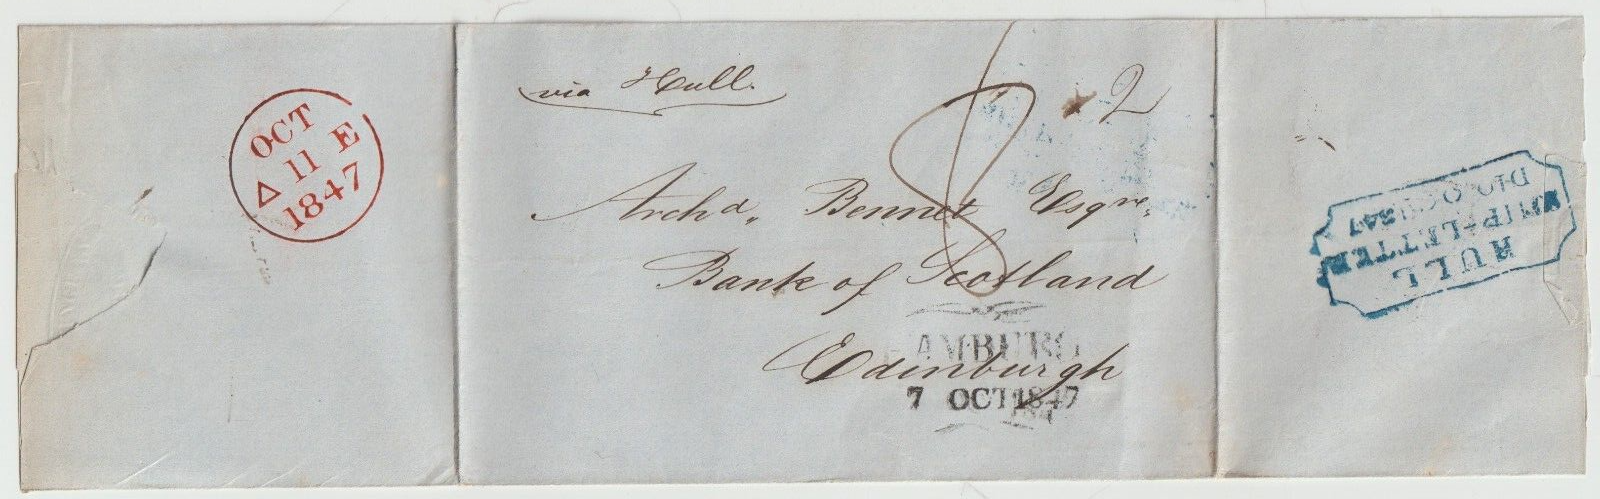 OCT
11 E
1847
via Hull.
8
2
Archd. Bennet Esqre.
Bank of Scotland
Edinburgh
HAMBURG
7 OCT 1847
HULL
SHIP-LETTER